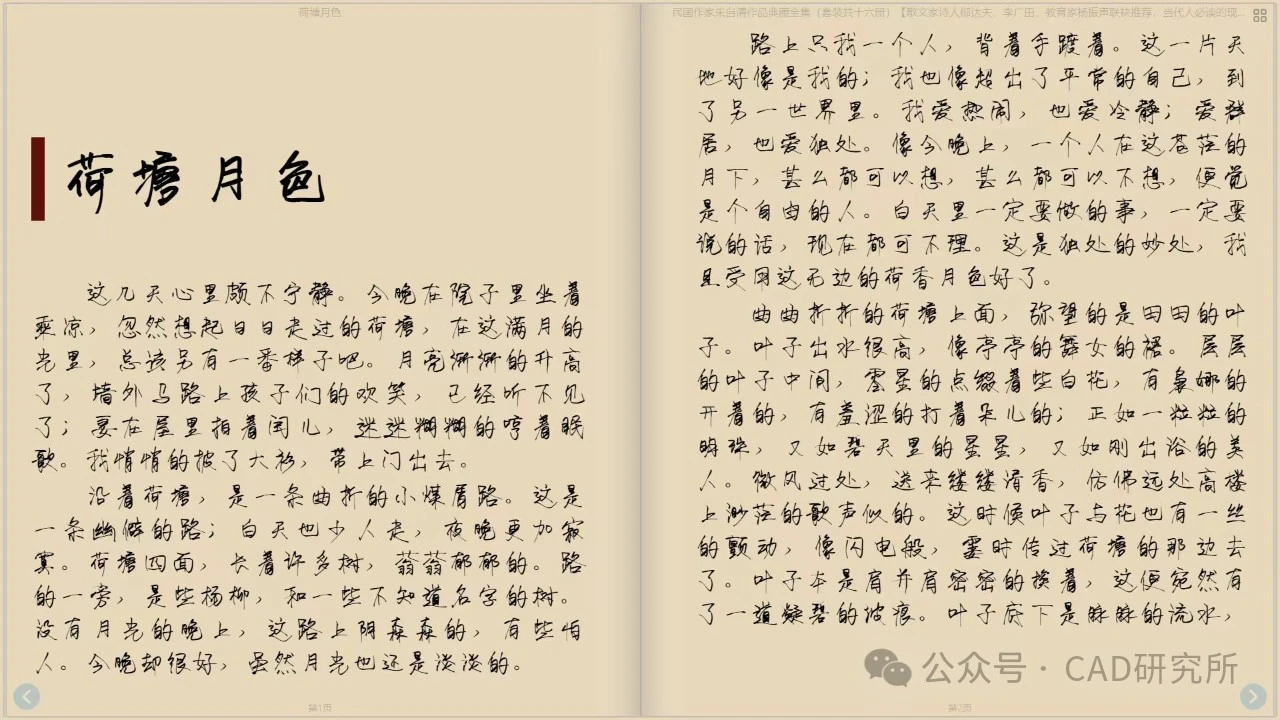 荷塘月色
荷塘月色
这几天心里颇不宁静。今晚在院子里坐着
乘凉，忽然想起日日走过的荷塘，在这满月的
光里，总该另有一番样子吧。月亮渐渐的升高
了，墙外马路上孩子们的欢笑，已经听不见
了；妻在屋里拍着闰儿，迷迷糊糊的哼着眠
歌。我悄悄的披了大衫，带上门出去。
沿着荷塘，是一条曲折的小煤屑路。这是
一条幽僻的路；白天也少人走，夜晚更加寂
寞。荷塘四面，长着许多树，蓊蓊郁郁的。路
的一旁，是些杨柳，和一些不知道名字的树。
没有月光的晚上，这路上阴森森的，有些怕
人。今晚却很好，虽然月光也还是淡淡的。
第1页
民国作家朱自清作品典藏全集（套装共十六册）【散文家诗人郁达夫、李广田、教育家杨振声联袂推荐，当代人必读的现...
路上只我一个人，背着手踱着。这一片天
地好像是我的；我也像超出了平常的自己，到
了另一世界里。我爱热闹，也爱冷静；爱群
居，也爱独处。像今晚上，一个人在这苍茫的
月下，甚么都可以想，甚么都可以不想，便觉
是个自由的人。白天里一定要做的事，一定要
说的话，现在都可不理。这是独处的妙处，我
且受用这无边的荷香月色好了。
曲曲折折的荷塘上面，弥望的是田田的叶
子。叶子出水很高，像亭亭的舞女的裙。层层
的叶子中间，零星的点缀着些白花，有袅娜的
开着的，有羞涩的打着朵儿的；正如一粒粒的
明珠，又如碧天里的星星，又如刚出浴的美
人。微风过处，送来缕缕清香，仿佛远处高楼
上渺茫的歌声似的。这时候叶子与花也有一丝
的颤动，像闪电般，霎时传过荷塘的那边去
了。叶子本是肩并肩密密的挨着，这便宛然有
了一道凝碧的波痕。叶子底下是脉脉的流水，
第2页
公众号·CAD研究所